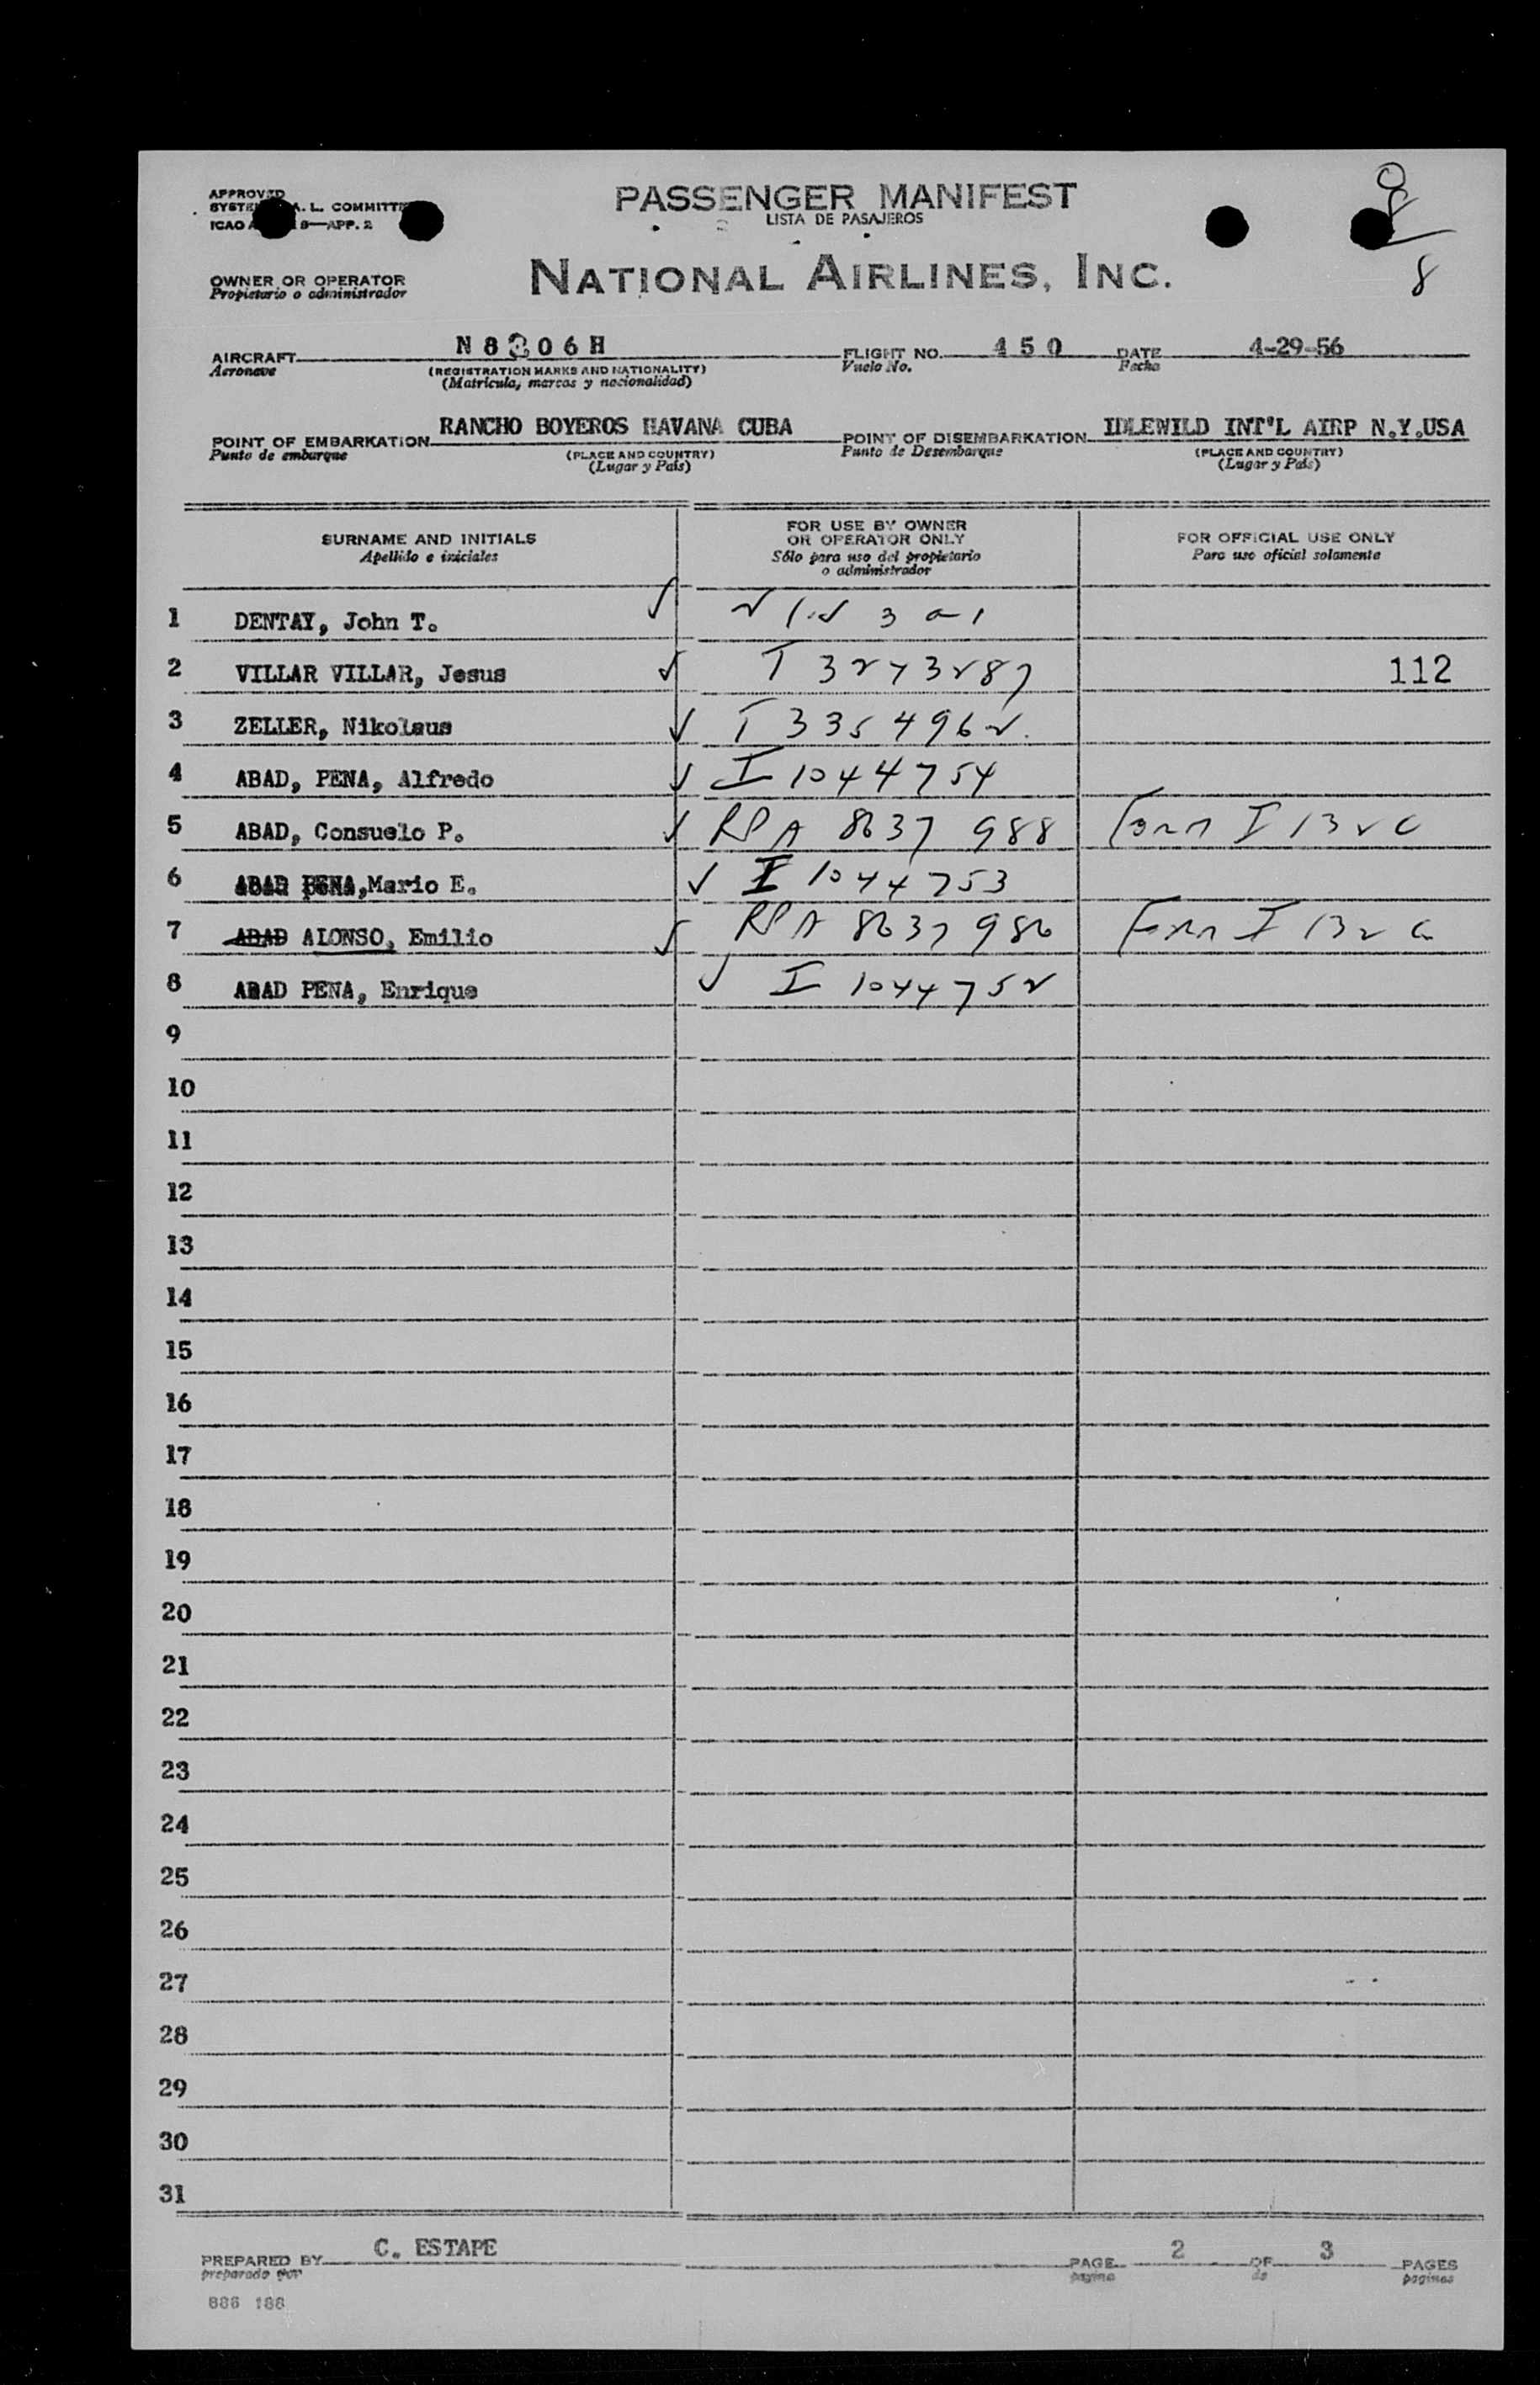 APPROVED
PASSENGER MANIFEST
LISTA DE PASAJEROS
A. L. COMMITTEE
ICAO 9—APP. 2
8
OWNER OR OPERATOR
Propietario o administrador
NATIONAL AIRLINES, INC.
8
AIRCRAFT N8306H FLIGHT NO. 450 DATE 4-29-56
Aeronave (REGISTRATION MARKS AND NATIONALITY) Vuelo No. Fecha
(Matrícula, marcas y nacionalidad)
POINT OF EMBARKATION RANCHO BOYEROS HAVANA CUBA POINT OF DISEMBARKATION IDLEWILD INT'L AIRP N.Y.USA
Punto de embarque (PLACE AND COUNTRY) Punto de Desembarque (PLACE AND COUNTRY)
(Lugar y País) (Lugar y País)
SURNAME AND INITIALS FOR USE BY OWNER OR OPERATOR ONLY FOR OFFICIAL USE ONLY
Apellido e iniciales Sólo para uso del propietario o administrador Para uso oficial solamente
1 DENTAY, John T. ✓
2 VILLAR VILLAR, Jesus ✓ T 3273287 112
3 ZELLER, Nikolaus ✓ T 3354962
4 ABAD, PENA, Alfredo ✓ I 1044754
5 ABAD, Consuelo P. ✓ RPA 8637 988 Form I 132 C
6 ABAD PENA, Mario E. ✓ I 1044753
7 ABAD ALONSO, Emilio ✓ RPA 8637 986 Form I 132 C
8 ABAD PENA, Enrique ✓ I 1044752
9
10
11
12
13
14
15
16
17
18
19
20
21
22
23
24
25
26
27
28
29
30
31
PREPARED BY C. ESTAPE PAGE 2 OF 3 PAGES
preparado por pagina de paginas
886 188